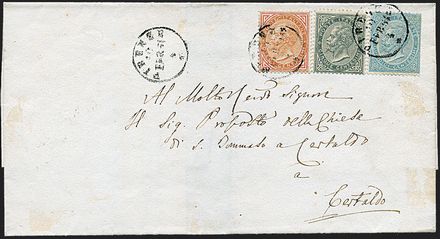 FIRENZE
Al Molto Rendo Signore
Il Sig. Proposto della Chiesa
di S. Tommaso a Certaldo
a
Certaldo